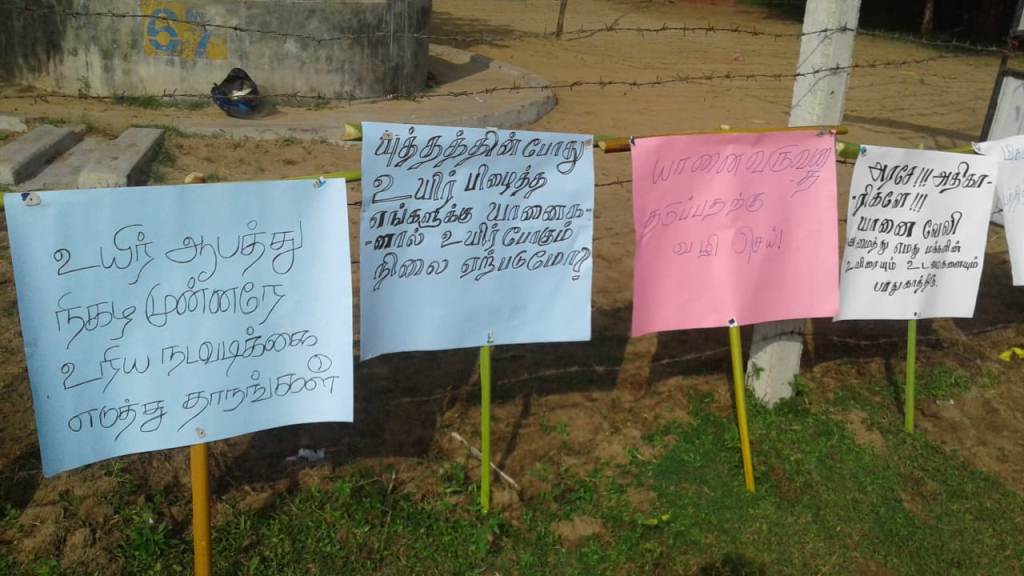 67
உயிர் ஆபத்து
நிகழ முன்னரே
உரிய நடவடிக்கை
எமக்கு தாருங்கள்
யுத்தத்தின் போது
உயிர் பிழைத்த
எங்களுக்கு யானைக
-ளால் உயிர்போகும்
நிலை ஏற்படுமோ?
யானை வருவதை
தடுப்பதற்கு
வழி செய்!
அரசே!!! அதிகா-
-ரிகளே!!!
யானை வேலி
அமைத்து எமது மக்களின்
உயிரையும் உடமைகளையும்